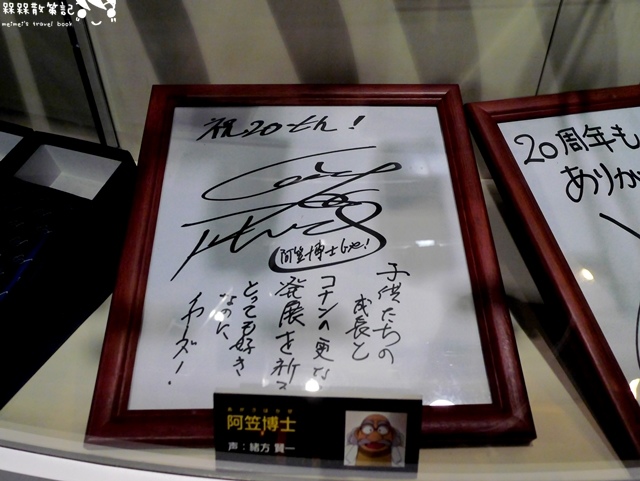 槑槑散策記
meimei's travel book
祝20とん!
阿笠博士じゃ!
子供たちの
成長と
コナンの更な
発展を祈る
とっても好き
なのに、
20周年も
ありが
あがさはかせ
阿笠博士
声:緒方 賢一